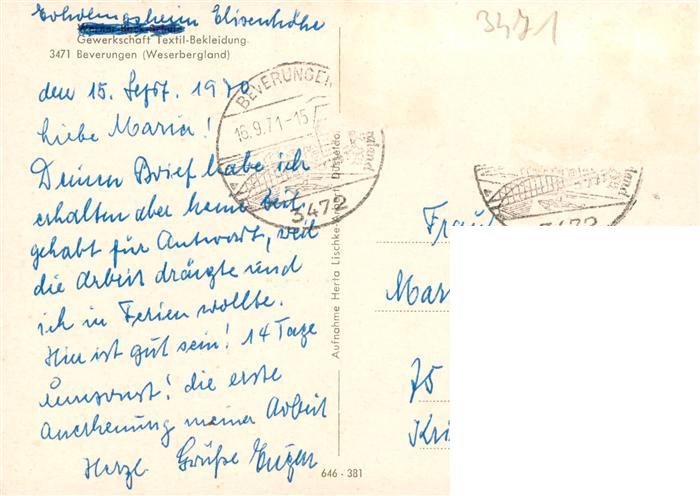 Erholungsheim Elisenhöhe
Werner-Bock-Schule
Gewerkschaft Textil-Bekleidung
3471 Beverungen (Weserbergland)
3471
den 15. Sept. 1970
Liebe Maria!
Deinen Brief habe ich
erhalten aber keine Zeit
gehabt für Antwort, weil
die Arbeit drängte und
ich in Ferien wollte.
Hier ist gut sein! 14 Tage
umsonst! die erste
Anerkennung meiner Arbeit
Herzl. Grüße Eugen
BEVERUNGEN
16.9.71-15
3472
3472
Aufnahme Herta Lischke
646 - 381
Frau
Mar
75